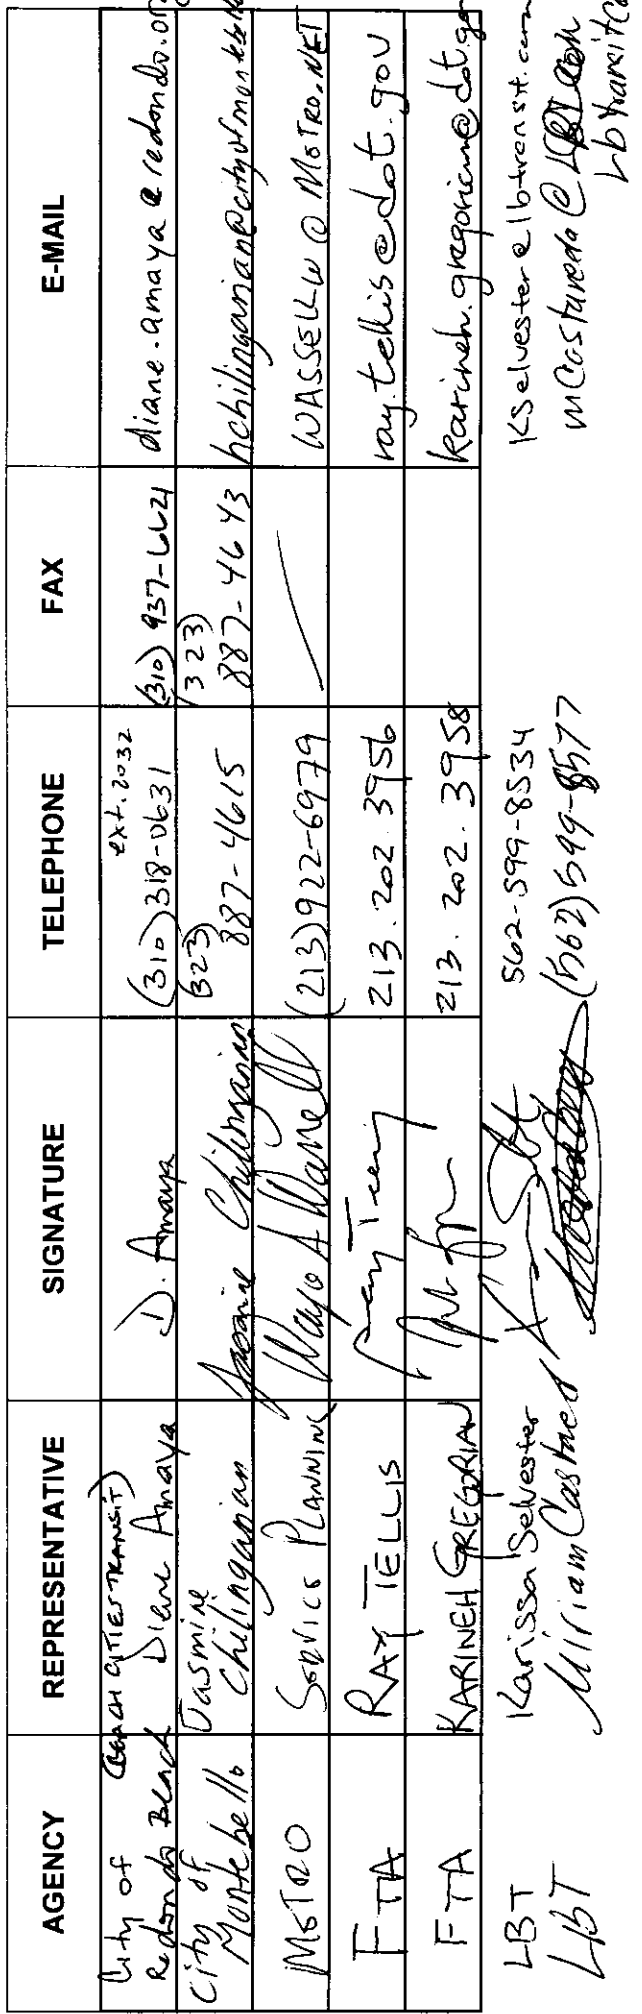 AGENCY REPRESENTATIVE SIGNATURE TELEPHONE FAX E-MAIL
City of Redondo Beach (BEACH CITIES TRANSIT) Diane Amaya D. Amaya ext. 2032 (310) 318-0631 (310) 937-6621 diane.amaya@redondo.org
City of Montebello Jasmine Chilingarian Jasmine Chilingarian (323) 887-4615 (323) 887-4643 hchilingarian@cityofmontebello
METRO SERVICE PLANNING Wayne A Wassell (213) 922-6979 WASSELLW@METRO.NET
FTA RAY TELLIS 213.202.3956 ray.tellis@dot.gov
FTA KARINEH GREGORIAN 213.202.3958 karineh.gregorian@dot.gov
LBT Karissa Selvester 562-599-8534 KSelvester@lbtransit.com
LBT Miriam Castaneda (562) 599-8577 mCastaneda@ lbtransit.co